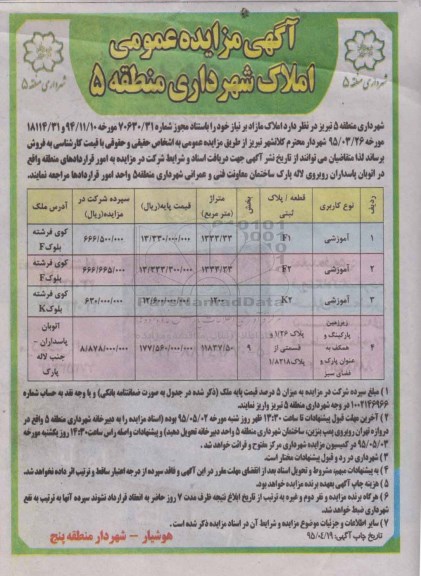 آگهی مزایده عمومی
املاک شهرداری منطقه ۵
شهرداری منطقه ۵
شهرداری منطقه ۵
شهرداری منطقه ۵ تبریز در نظر دارد املاک مازاد بر نیاز خود را باستناد مجوز شماره ۷۰۶۳۰/۳۱ مورخه ۹۴/۱۱/۱۰ و ۱۸۱۱۴/۳۱
مورخه ۹۵/۰۳/۲۶ شهردار محترم کلانشهر تبریز از طریق مزایده عمومی به اشخاص حقیقی و حقوقی با قیمت کارشناسی به فروش
برساند لذا متقاضیان می توانند از تاریخ نشر آگهی جهت دریافت اسناد و شرایط شرکت در مزایده به امور قراردادهای منطقه واقع
در اتوبان پاسداران روبروی لاله پارک ساختمان معاونت فنی و عمرانی شهرداری منطقه۵ واحد امور قراردادها مراجعه نمایند.
ردیف نوع کاربری قطعه / پلاک ثبتی بخش متراژ (متر مربع) قیمت پایه(ریال) سپرده شرکت در مزایده(ریال) آدرس ملک
۱ آموزشی F۱ ۱۳۳۳/۳۳ ۱۳/۳۳۰/۰۰۰/۰۰۰ ۶۶۶/۵۰۰/۰۰۰ کوی فرشته بلوکF
۲ آموزشی F۲ ۱۳۳۳/۳۳ ۱۳/۳۳۳/۳۰۰/۰۰۰ ۶۶۶/۶۶۵/۰۰۰ کوی فرشته بلوکF
۳ آموزشی K۲ ۱۲۰۰ ۱۲/۶۰۰/۰۰۰/۰۰۰ ۶۳۰/۰۰۰/۰۰۰ کوی فرشته بلوکK
۴ زیرزمین پارکینگ و همکف به عنوان پارک و فضای سبز پلاک ۱/۲۶ و قسمتی از پلاک۱/۸۲۱۸ ۹ ۱۱۸۳۷/۵۰ ۱۷۷/۵۶۰/۰۰۰/۰۰۰ ۸/۸۷۸/۰۰۰/۰۰۰ اتوبان پاسداران - جنب لاله پارک
۱) مبلغ سپرده شرکت در مزایده به میزان ۵ درصد قیمت پایه ملک (ذکر شده در جدول به صورت ضمانتنامه بانکی) و یا وجه نقد به حساب شماره
۱۰۰۲۱۴۶۹۶۶ در وجه شهرداری منطقه ۵ تبریز واریز نمایند.
۲) آخرین مهلت قبول پیشنهادات تا ساعت ۱۴:۳۰ ظهر روز شنبه مورخه ۹۵/۰۵/۰۲ بوده (اسناد مزایده را به دبیرخانه شهرداری منطقه ۵ واقع در
دروازه تهران روبروی پمپ بنزین، ساختمان شهرداری منطقه ۵ واحد دبیرخانه تحویل دهید) و پیشنهادات واصله راس ساعت۱۴:۳۰ روز یکشنبه مورخه
۹۵/۰۵/۰۳ در کمیسیون مزایده شهرداری مرکز مفتوح و قرائت خواهد شد.
۳) شهرداری در رد و قبول پیشنهادات مختار است.
۴) به پیشنهادات مبهم، مشروط و تحویل اسناد بعد از انقضای مهلت مقرر در این آگهی و فاقد سپرده از درجه اعتبار ساقط و ترتیب اثر داده نخواهد شد.
۵) هزینه چاپ آگهی بعهده برنده مزایده خواهد بود.
۶) هرگاه برنده مزایده و نفر دوم و غیره به ترتیب از تاریخ ابلاغ نتیجه ظرف مدت ۷ روز حاضر به انعقاد قرارداد نشوند سپرده آنها به ترتیب به نفع
شهرداری ضبط خواهد شد.
۷) سایر اطلاعات و جزئیات موضوع مزایده و شرایط آن در اسناد مزایده ذکر شده است.
تاریخ چاپ آگهی: ۹۵/۰۴/۱۹
هوشیار – شهردار منطقه پنج